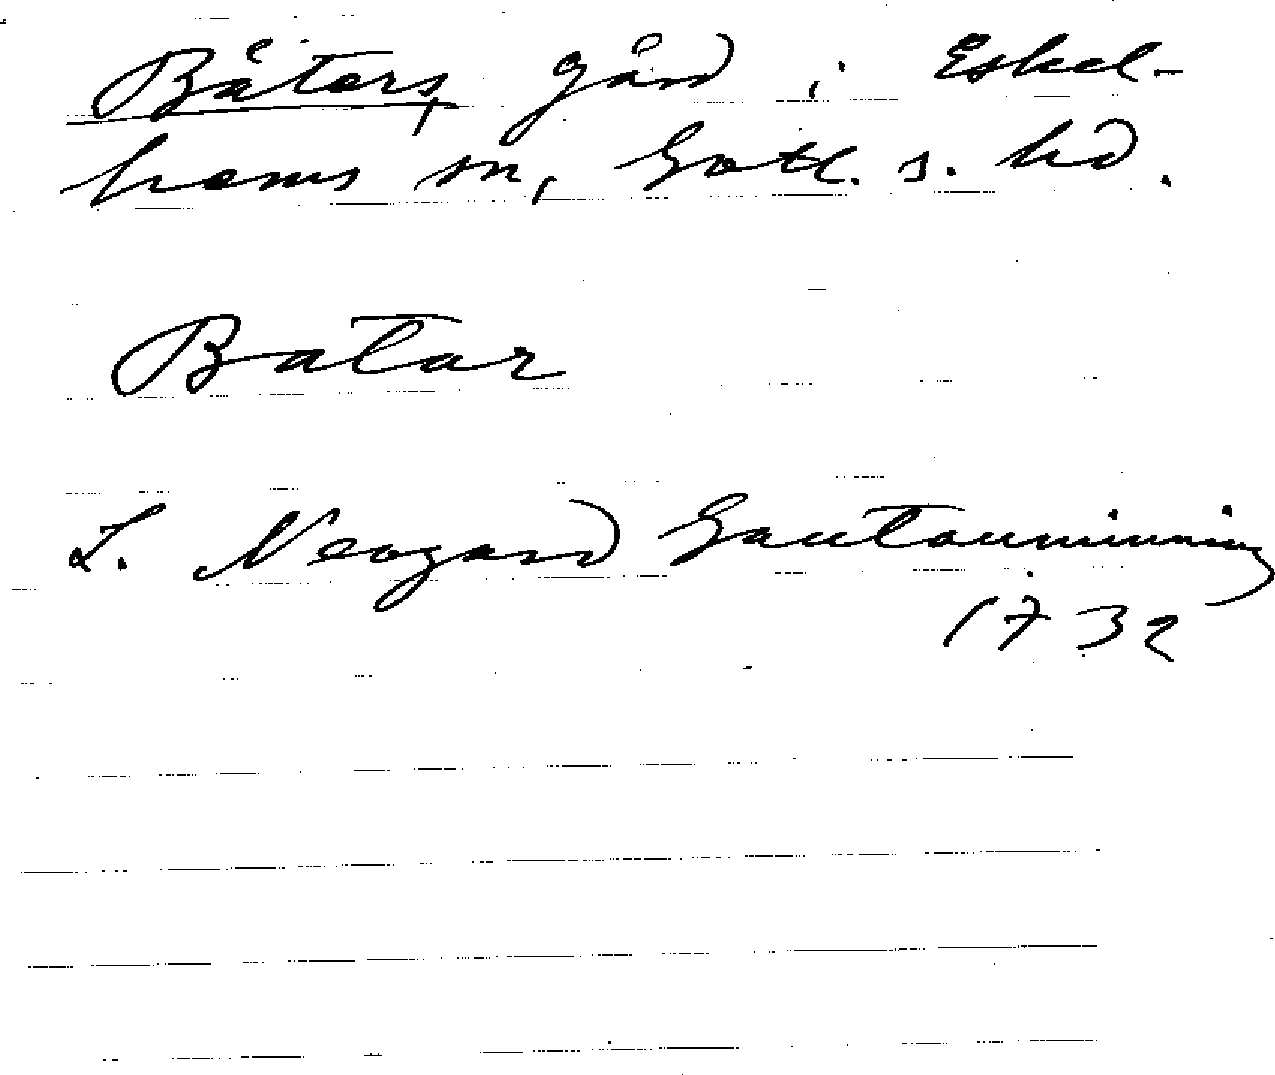 Båters, gård i Eskel-
hems sn, Gotl. s. hd.
Batar
L. Neogard Gautauminning
1732